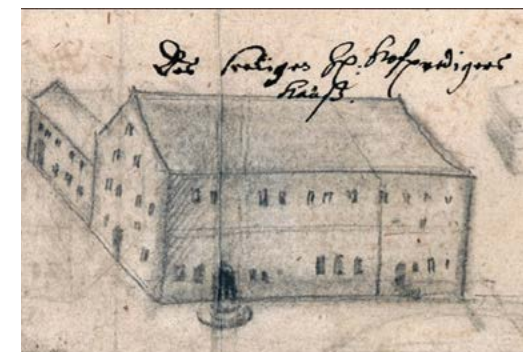 Des seeligen H. Hofpredigers
Hauß.